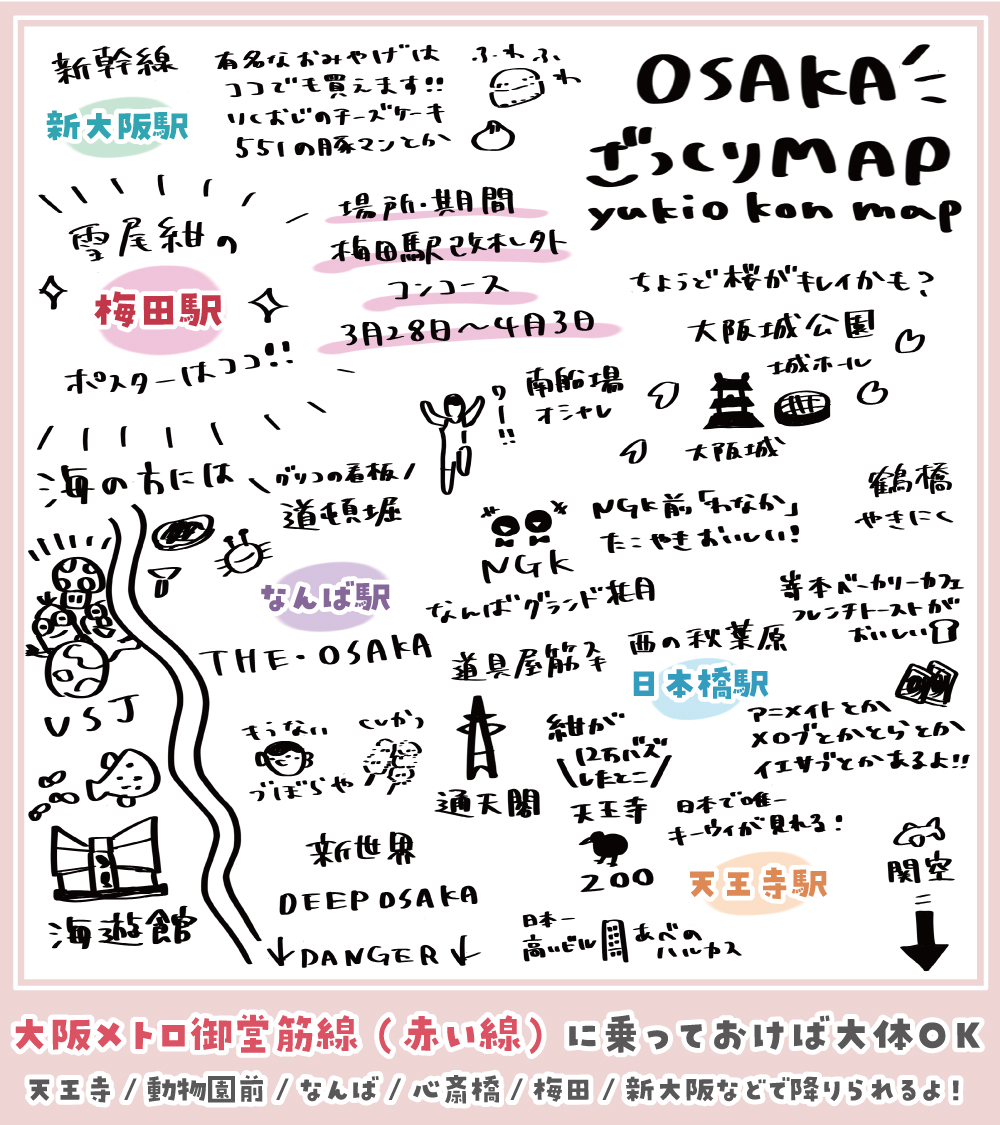 OSAKA
ざっくりMAP
yukio kon map
新幹線
新大阪駅
有名なおみやげは
ココでも買えます!!
りくおじのチーズケーキ
551の豚マンとか
ふわふ
わ
雪尾紺の
梅田駅
ポスターはココ!!
場所・期間
梅田駅改札外
コンコース
3月28日〜4月3日
ちょうど桜がキレイかも?
大阪城公園
城ホール
大阪城
南船場
オシャレ
ワー!!
グリコの看板!
道頓堀
海の方には
鶴橋
やきにく
NGK前「わなか」
たこやきおいしい!
NGK
なんば駅
なんばグランド花月
THE・OSAKA
道具屋筋
スキ
西の秋葉原
日本橋駅
嵜本ベーカリーカフェ
フレンチトーストが
おいしい
アニメイトとか
メロブとかとらとか
イエサブとかあるよ!!
USJ
もうない
(しかつ
づぼらや
通天閣
紺が
12万バズ
したとこ
天王寺
日本で唯一
キーウィが見れる!
ZOO
天王寺駅
関空
海遊館
新世界
DEEP OSAKA
DANGER
日本一
高いビル
あべの
ハルカス
大阪メトロ御堂筋線(赤い線)に乗っておけば大体OK
天王寺/動物園前/なんば/心斎橋/梅田/新大阪などで降りられるよ!